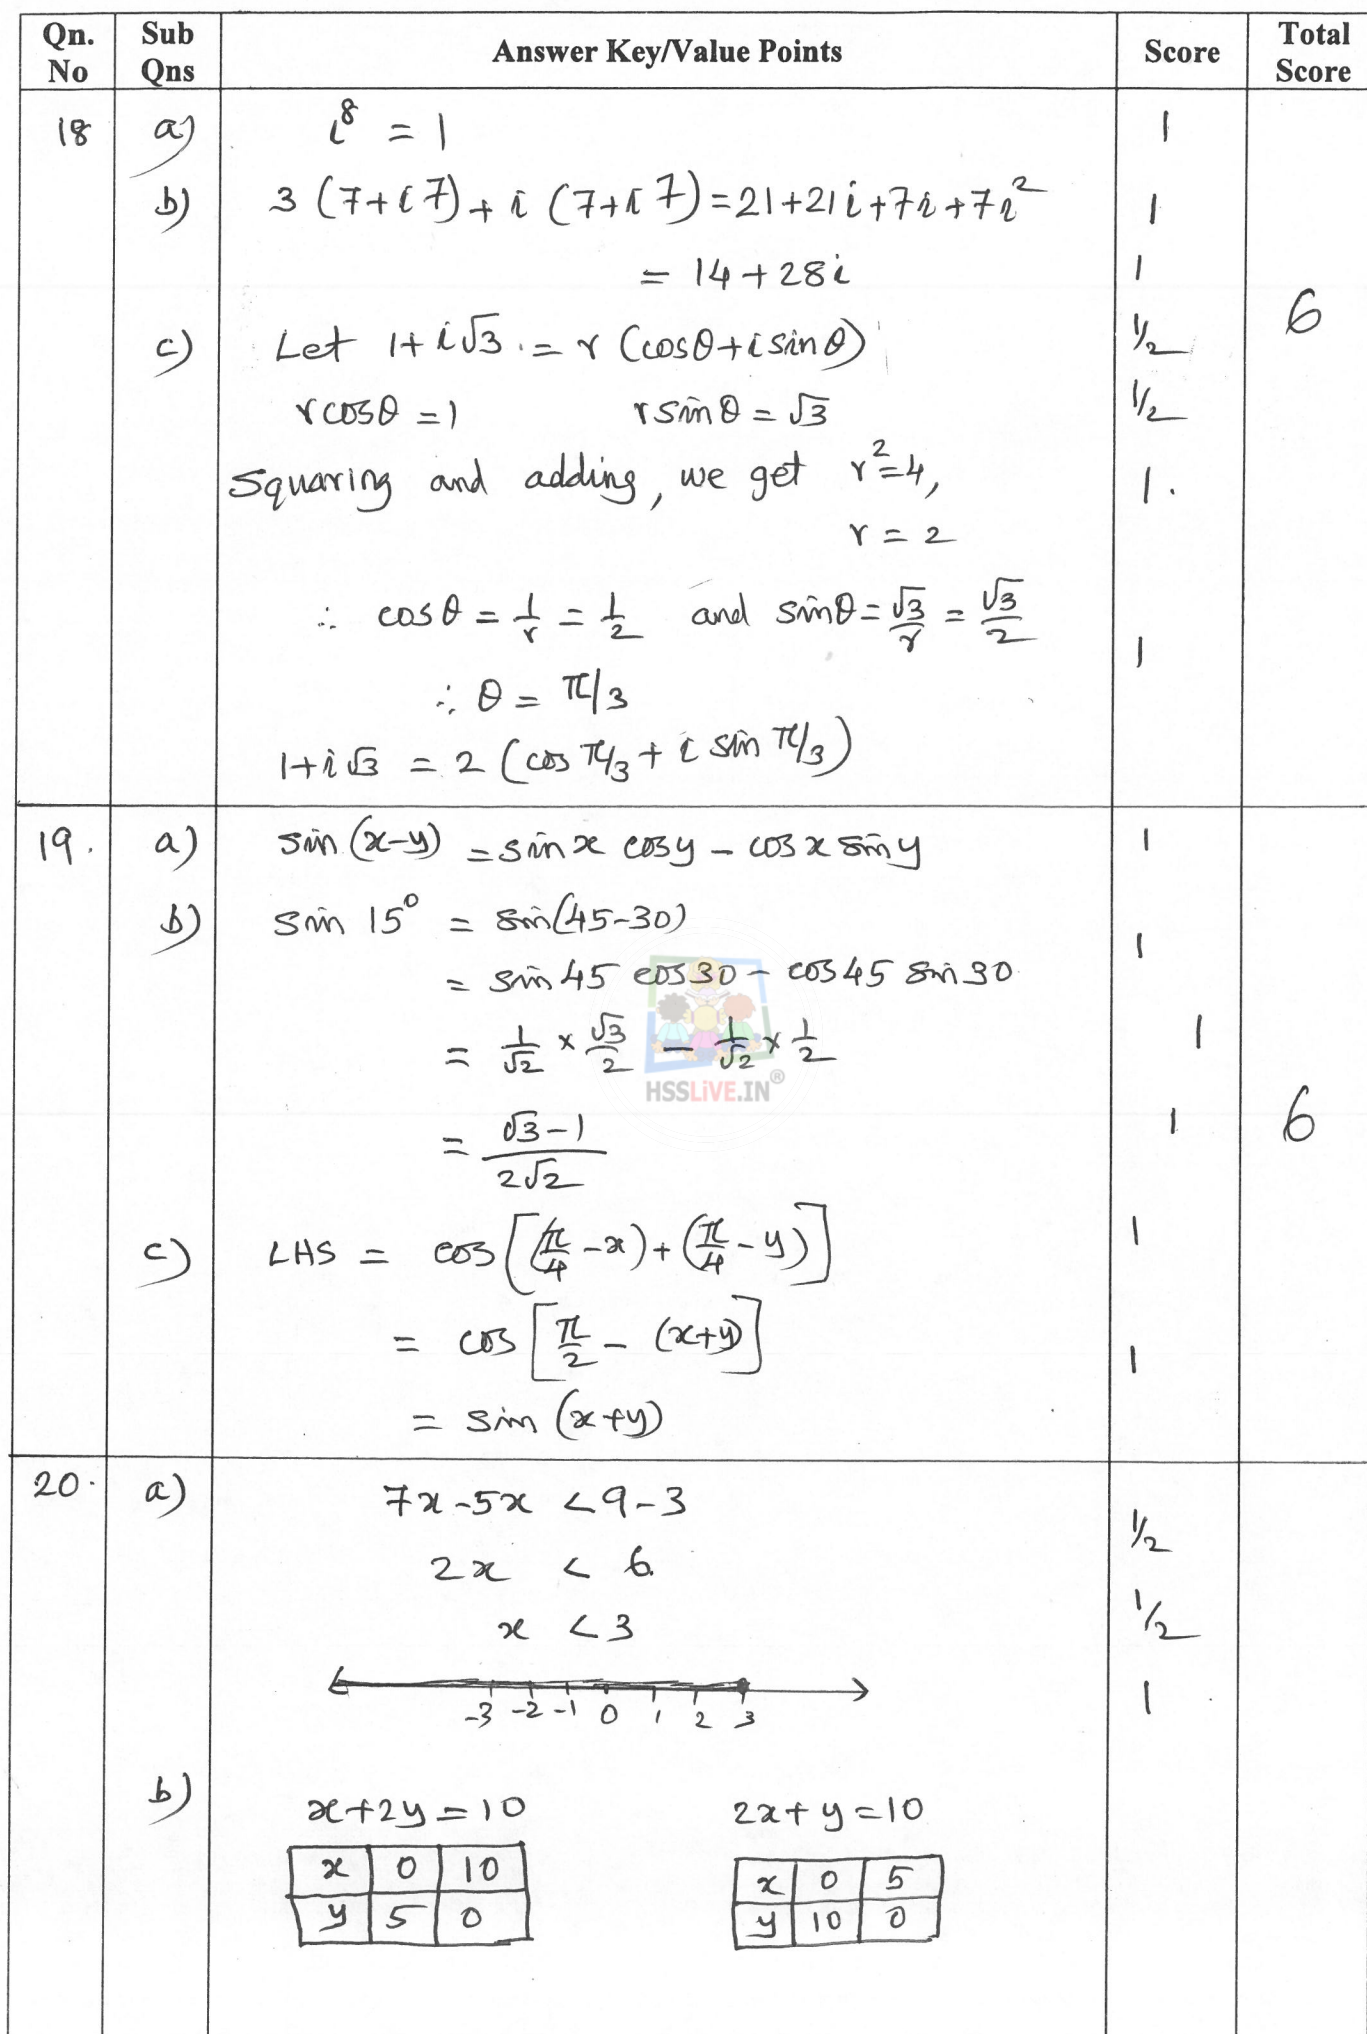 Qn. No Sub Qns Answer Key/Value Points Score Total Score
18 a) i⁸ = 1 1
b) 3 (7+i7) + i (7+i7) = 21+21i+7i+7i² 1
= 14+28i 1
6
c) Let 1+i√3 = r (cosθ+isinθ) 1/2
rcosθ = 1 rsinθ = √3 1/2
Squaring and adding, we get r²=4, 1.
r = 2
∴ cosθ = 1/r = 1/2 and sinθ = √3/r = √3/2
1
∴ θ = π/3
1+i√3 = 2 (cos π/3 + i sin π/3)
19. a) sin (x-y) = sin x cosy - cos x sin y 1
b) sin 15° = sin(45-30) 1
= sin 45 cos 30 - cos 45 sin 30
= 1/√2 × √3/2 - 1/√2 × 1/2 1
HSSLiVE.IN®
= √3-1 / 2√2 1 6
c) LHS = cos [(π/4 - x) + (π/4 - y)] 1
= cos [π/2 - (x+y)] 1
= sin (x+y)
20. a) 7x-5x < 9-3 1/2
2x < 6
x < 3 1/2
-3 -2 -1 0 1 2 3 1
b) x+2y = 10 2x+y = 10
x 0 10 x 0 5
y 5 0 y 10 0